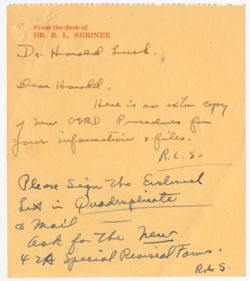 From the desk of
DR. R. L. SHRINER
Dr. Harold Lusk.
Dear Harold,
Here is an extra copy
of new OSRD Procedures for
your information & files.
R.L.S.
Please Sign The Enclosed
in Quadruplicate
& Mail
Ask for The New
4 Special Revised Forms.
R.L.S.